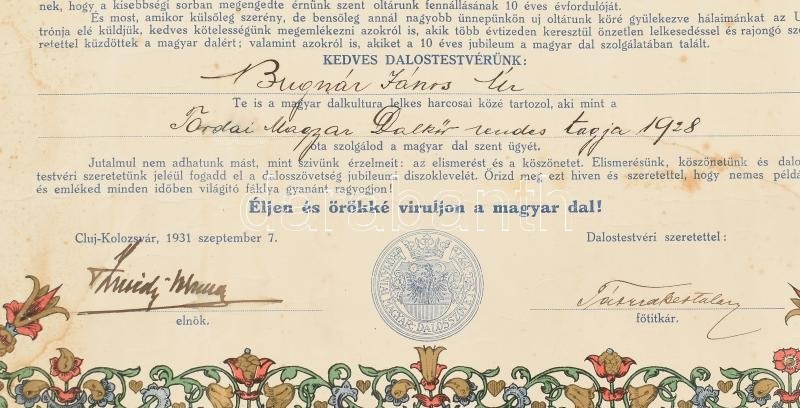 nek, hogy a kisebbségi sorban megengedte érnünk szent oltárunk fennállásának 10 éves évfordulóját.
És most, amikor külsőleg szerény, de bensőleg annál nagyobb ünnepünkön uj oltárunk köré gyülekezve hálaimánkat az U
trónja elé küldjük, kedves kötelességünk megemlékezni azokról is, akik több évtizeden keresztül önzetlen lelkesedéssel és rajongó sze
retettel küzdöttek a magyar dalért; valamint azokról is, akiket a 10 éves jubileum a magyar dal szolgálatában talált.
KEDVES DALOSTESTVÉRÜNK:
Bugnár János Úr
Te is a magyar dalkultura lelkes harcosai közé tartozol, aki mint a
Tordai Magyar Dalkör rendes tagja 1928
óta szolgálod a magyar dal szent ügyét.
Jutalmul nem adhatunk mást, mint szivünk érzelmeit: az elismerést és a köszönetet. Elismerésünk, köszönetünk és dalo
testvéri szeretetünk jeléül fogadd el a dalosszövetség jubileumi diszoklevelét. Őrizd meg ezt hiven és szeretettel, hogy nemes példá
és emléked minden időben világitó fáklya gyanánt ragyogjon!
Éljen és örökké viruljon a magyar dal!
darabanth
Cluj-Kolozsvár, 1931 szeptember 7.
Dalostestvéri szeretettel:
MAGYAR DALOSSZÖV
elnök.
főtitkár.